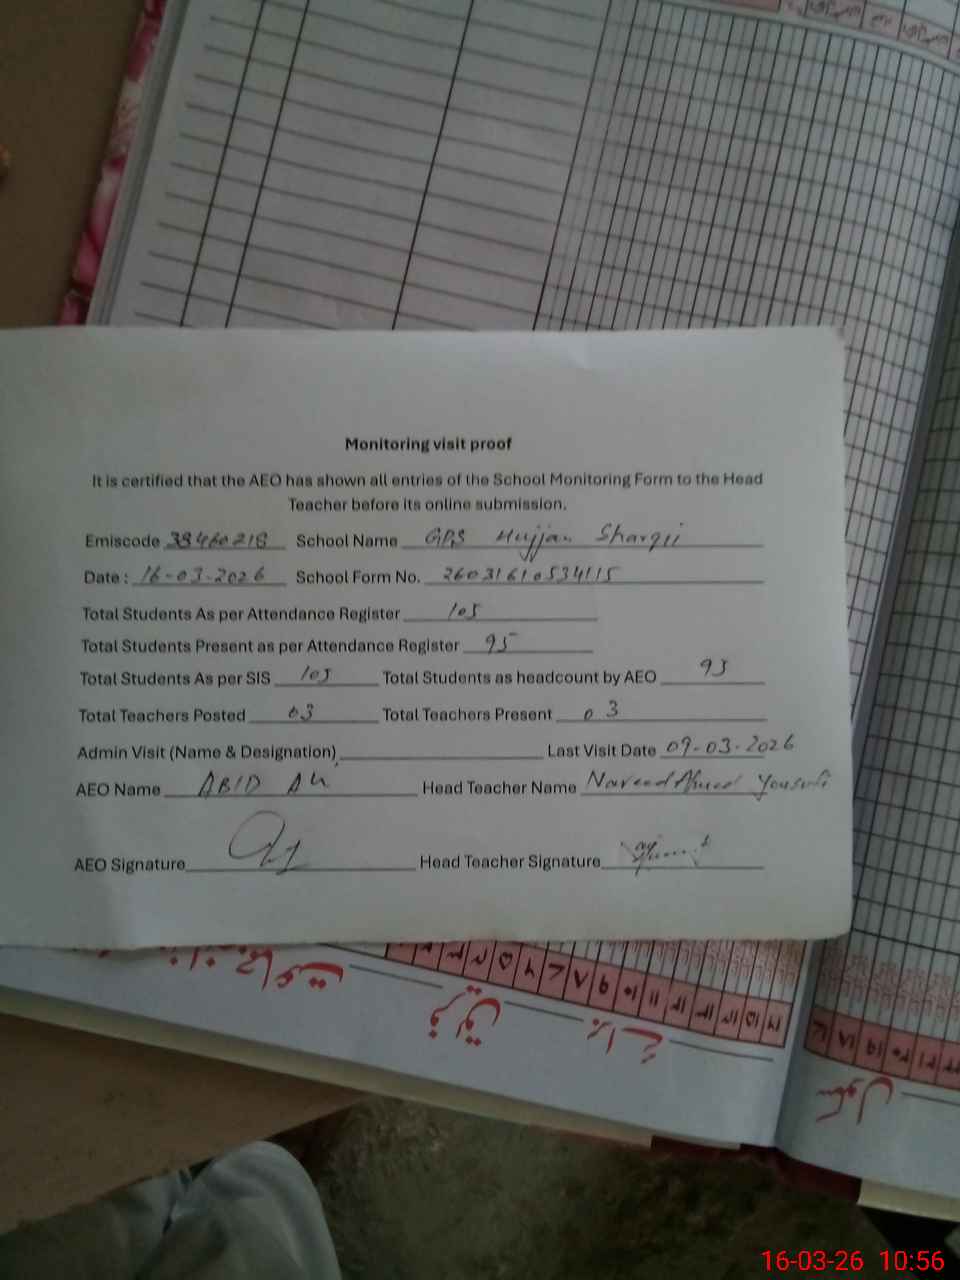 Monitoring visit proof
It is certified that the AEO has shown all entries of the School Monitoring Form to the Head
Teacher before its online submission.
Emiscode 38460218 School Name GPS Hujjan Sharqii
Date : 16-03-2026 School Form No. 26031610534115
Total Students As per Attendance Register 105
Total Students Present as per Attendance Register 95
Total Students As per SIS 105 Total Students as headcount by AEO 95
Total Teachers Posted 03 Total Teachers Present 03
Admin Visit (Name & Designation) Last Visit Date 09-03-2026
AEO Name ABID Ali Head Teacher Name Naveed Ahmed Yousufi
AEO Signature Head Teacher Signature
بابت ماہ
سکول
16-03-26 10:56